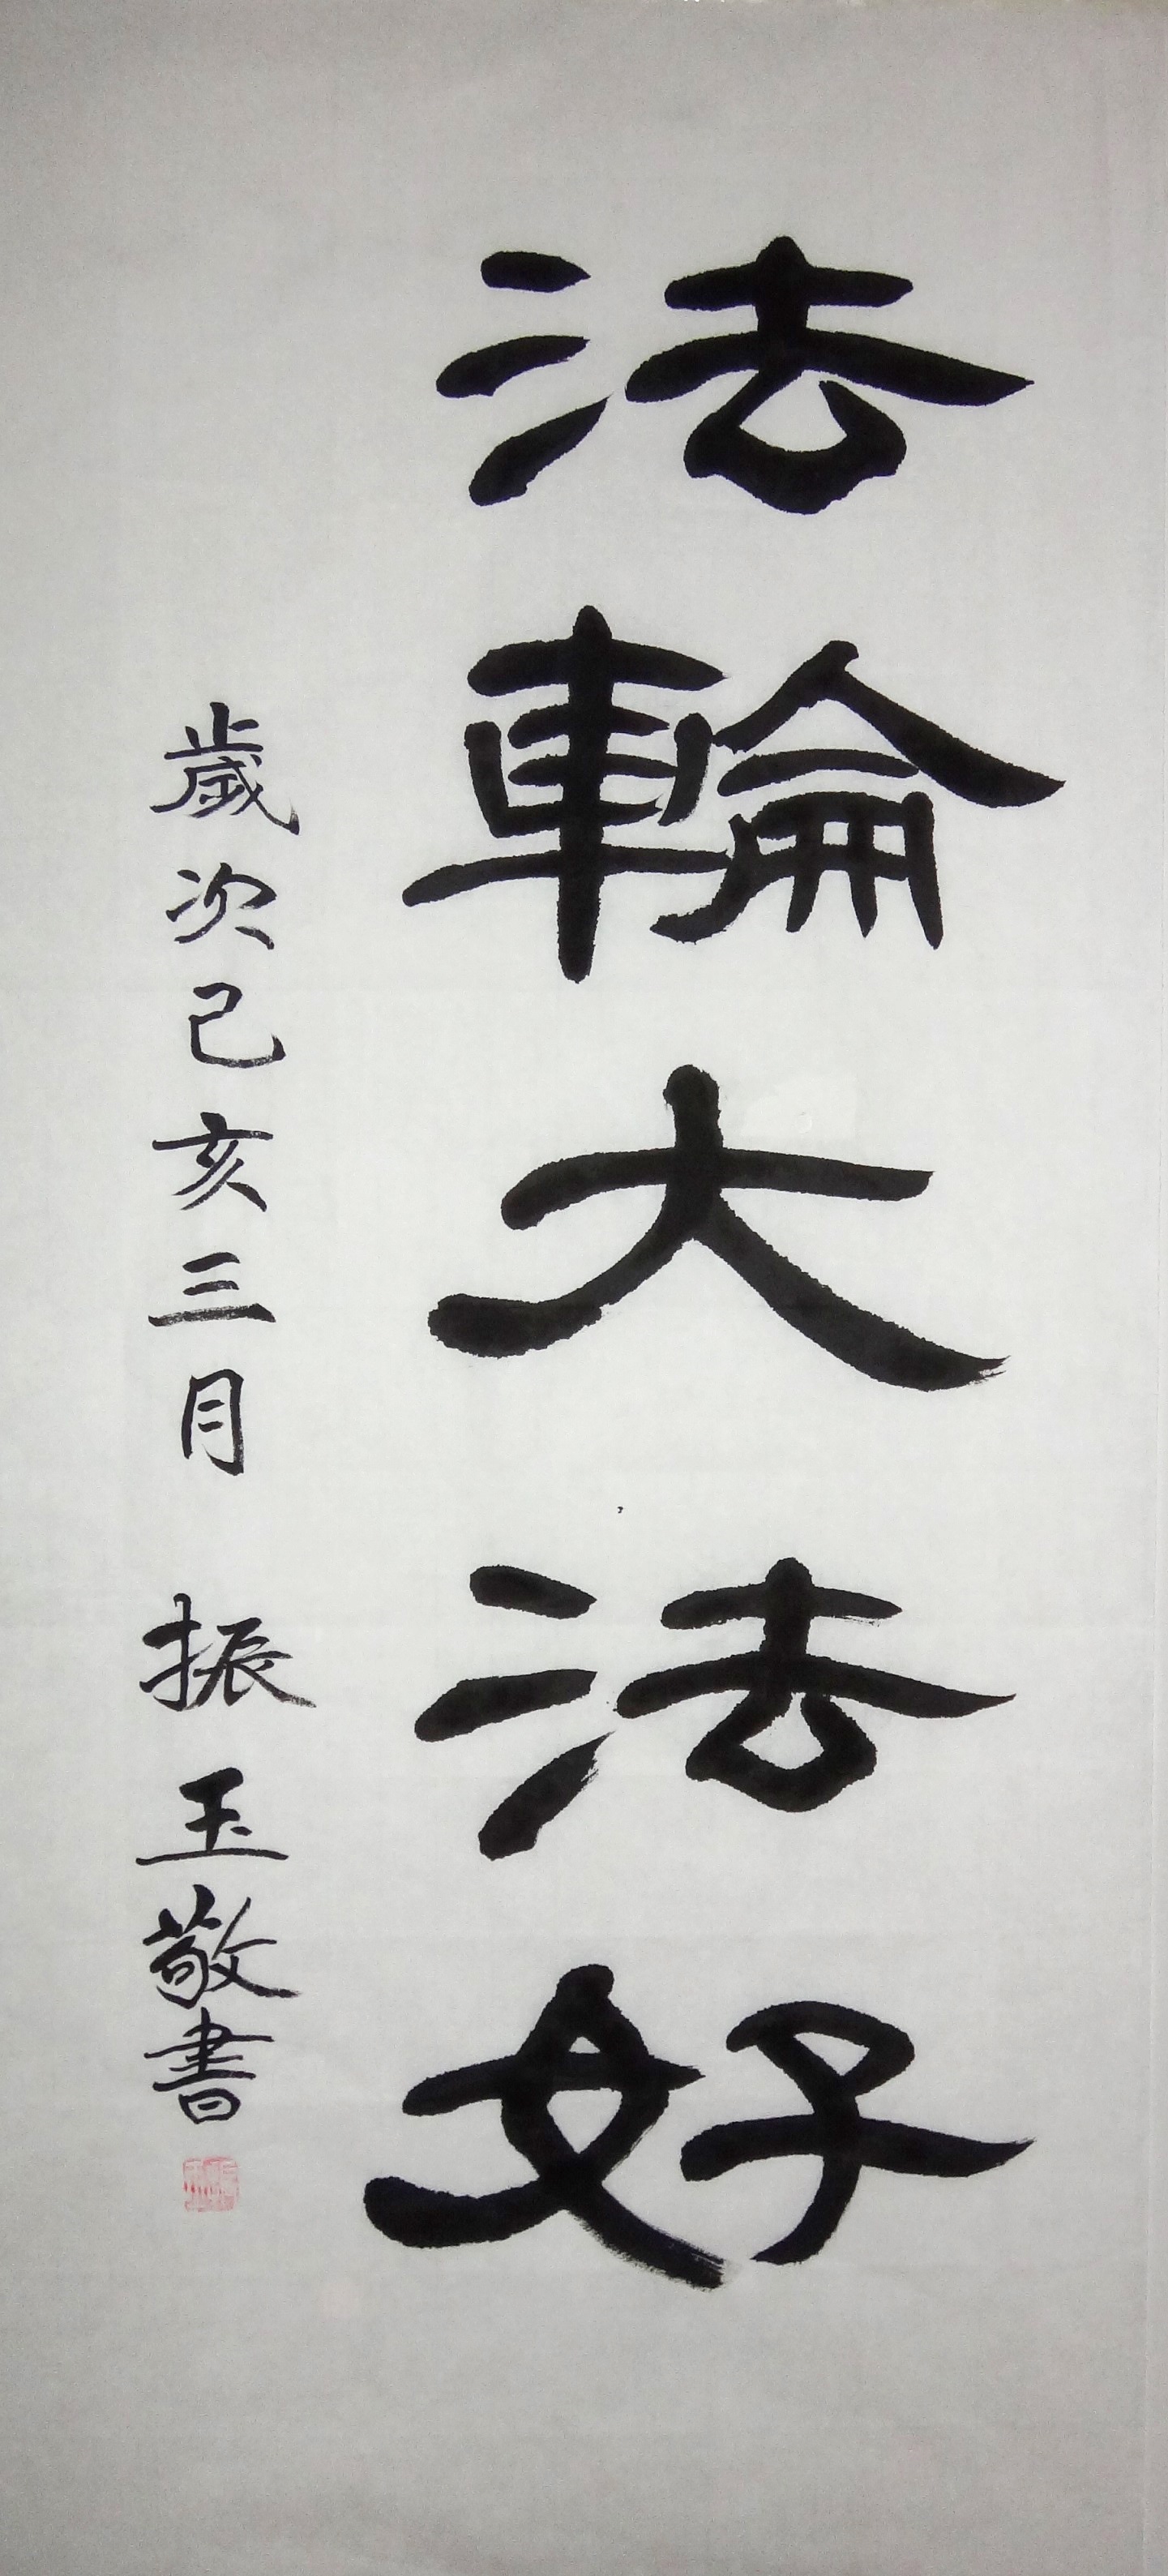 法輪大法好
歲次己亥三月 振玉敬書